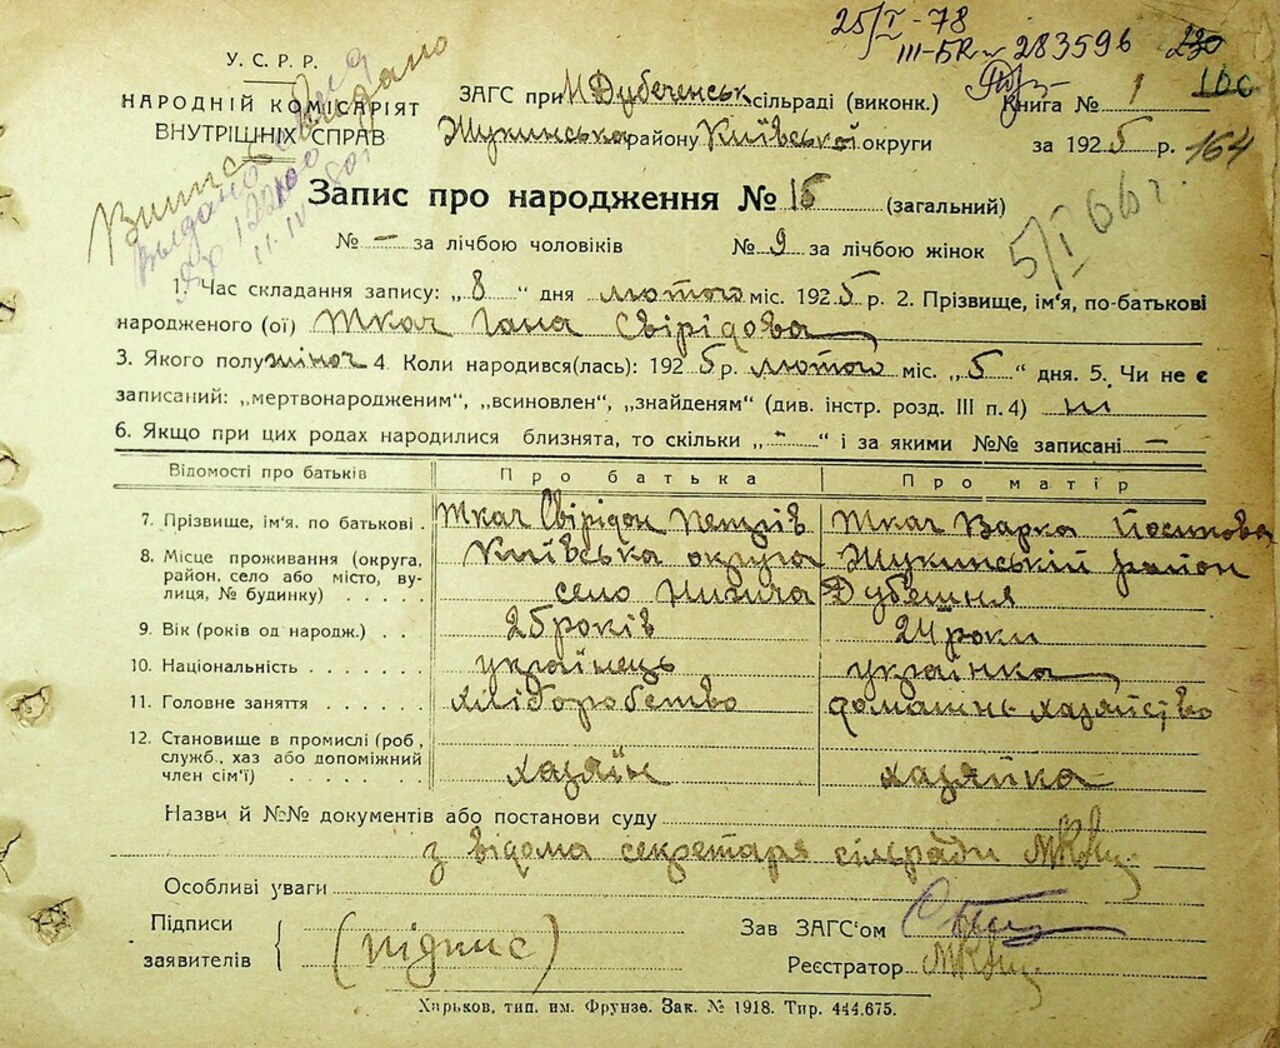 25/I-78
III-БК № 283596 230
У. С. Р. Р.
НАРОДНІЙ КОМІСАРІЯТ
ВНУТРІШНІХ СПРАВ
ЗАГС при Н Дубеченськ сільраді (виконк.)
Жукинська району Київської округи
Книга № 1 100
за 1925 р. 164
Запис про народження № 15 (загальний)
№ — за лічбою чоловіків № 9 за лічбою жінок
5/I 66 г.
1. Час складання запису: „8“ дня лютого міс. 1925 р. 2. Прізвище, ім'я, по-батькові
народженого (ої) Ткач Гана Свірідова
3. Якого полу жіноч 4. Коли народився(лась): 1925 р. лютого міс. „5“ дня. 5. Чи не є
записаний: „мертвонародженим“, „всиновлен“, „знайденям“ (див. інстр. розд. III п. 4) ні
6. Якщо при цих родах народилися близнята, то скільки „-“ і за якими №№ записані —
Відомості про батьків Про батька Про матір
7. Прізвище, ім'я. по батькові . Ткач Свірідон Петрів Ткач Варка Йосипова
8. Місце проживання (округа, Київська округа Жукинській район
район, село або місто, ву-
лиця, № будинку) . . . . . село Нижча Дубешня
9. Вік (років од народж.) . . 25 років 24 роки
10. Національність . . . . . . українець українка
11. Головне заняття . . . . . хліборобство домашнь хазяйство
12. Становище в промислі (роб,
служб., хаз або допоміжний
член сім'ї) . . . . . . хазяїн хазяйка
Назви й №№ документів або постанови суду
з відома секретаря сільради
Особливі уваги
Підписи
заявителів (підпис)
Зав ЗАГС'ом
Реєстратор
Харьков, тип. им. Фрунзе. Зак. № 1918. Тир. 444.675.